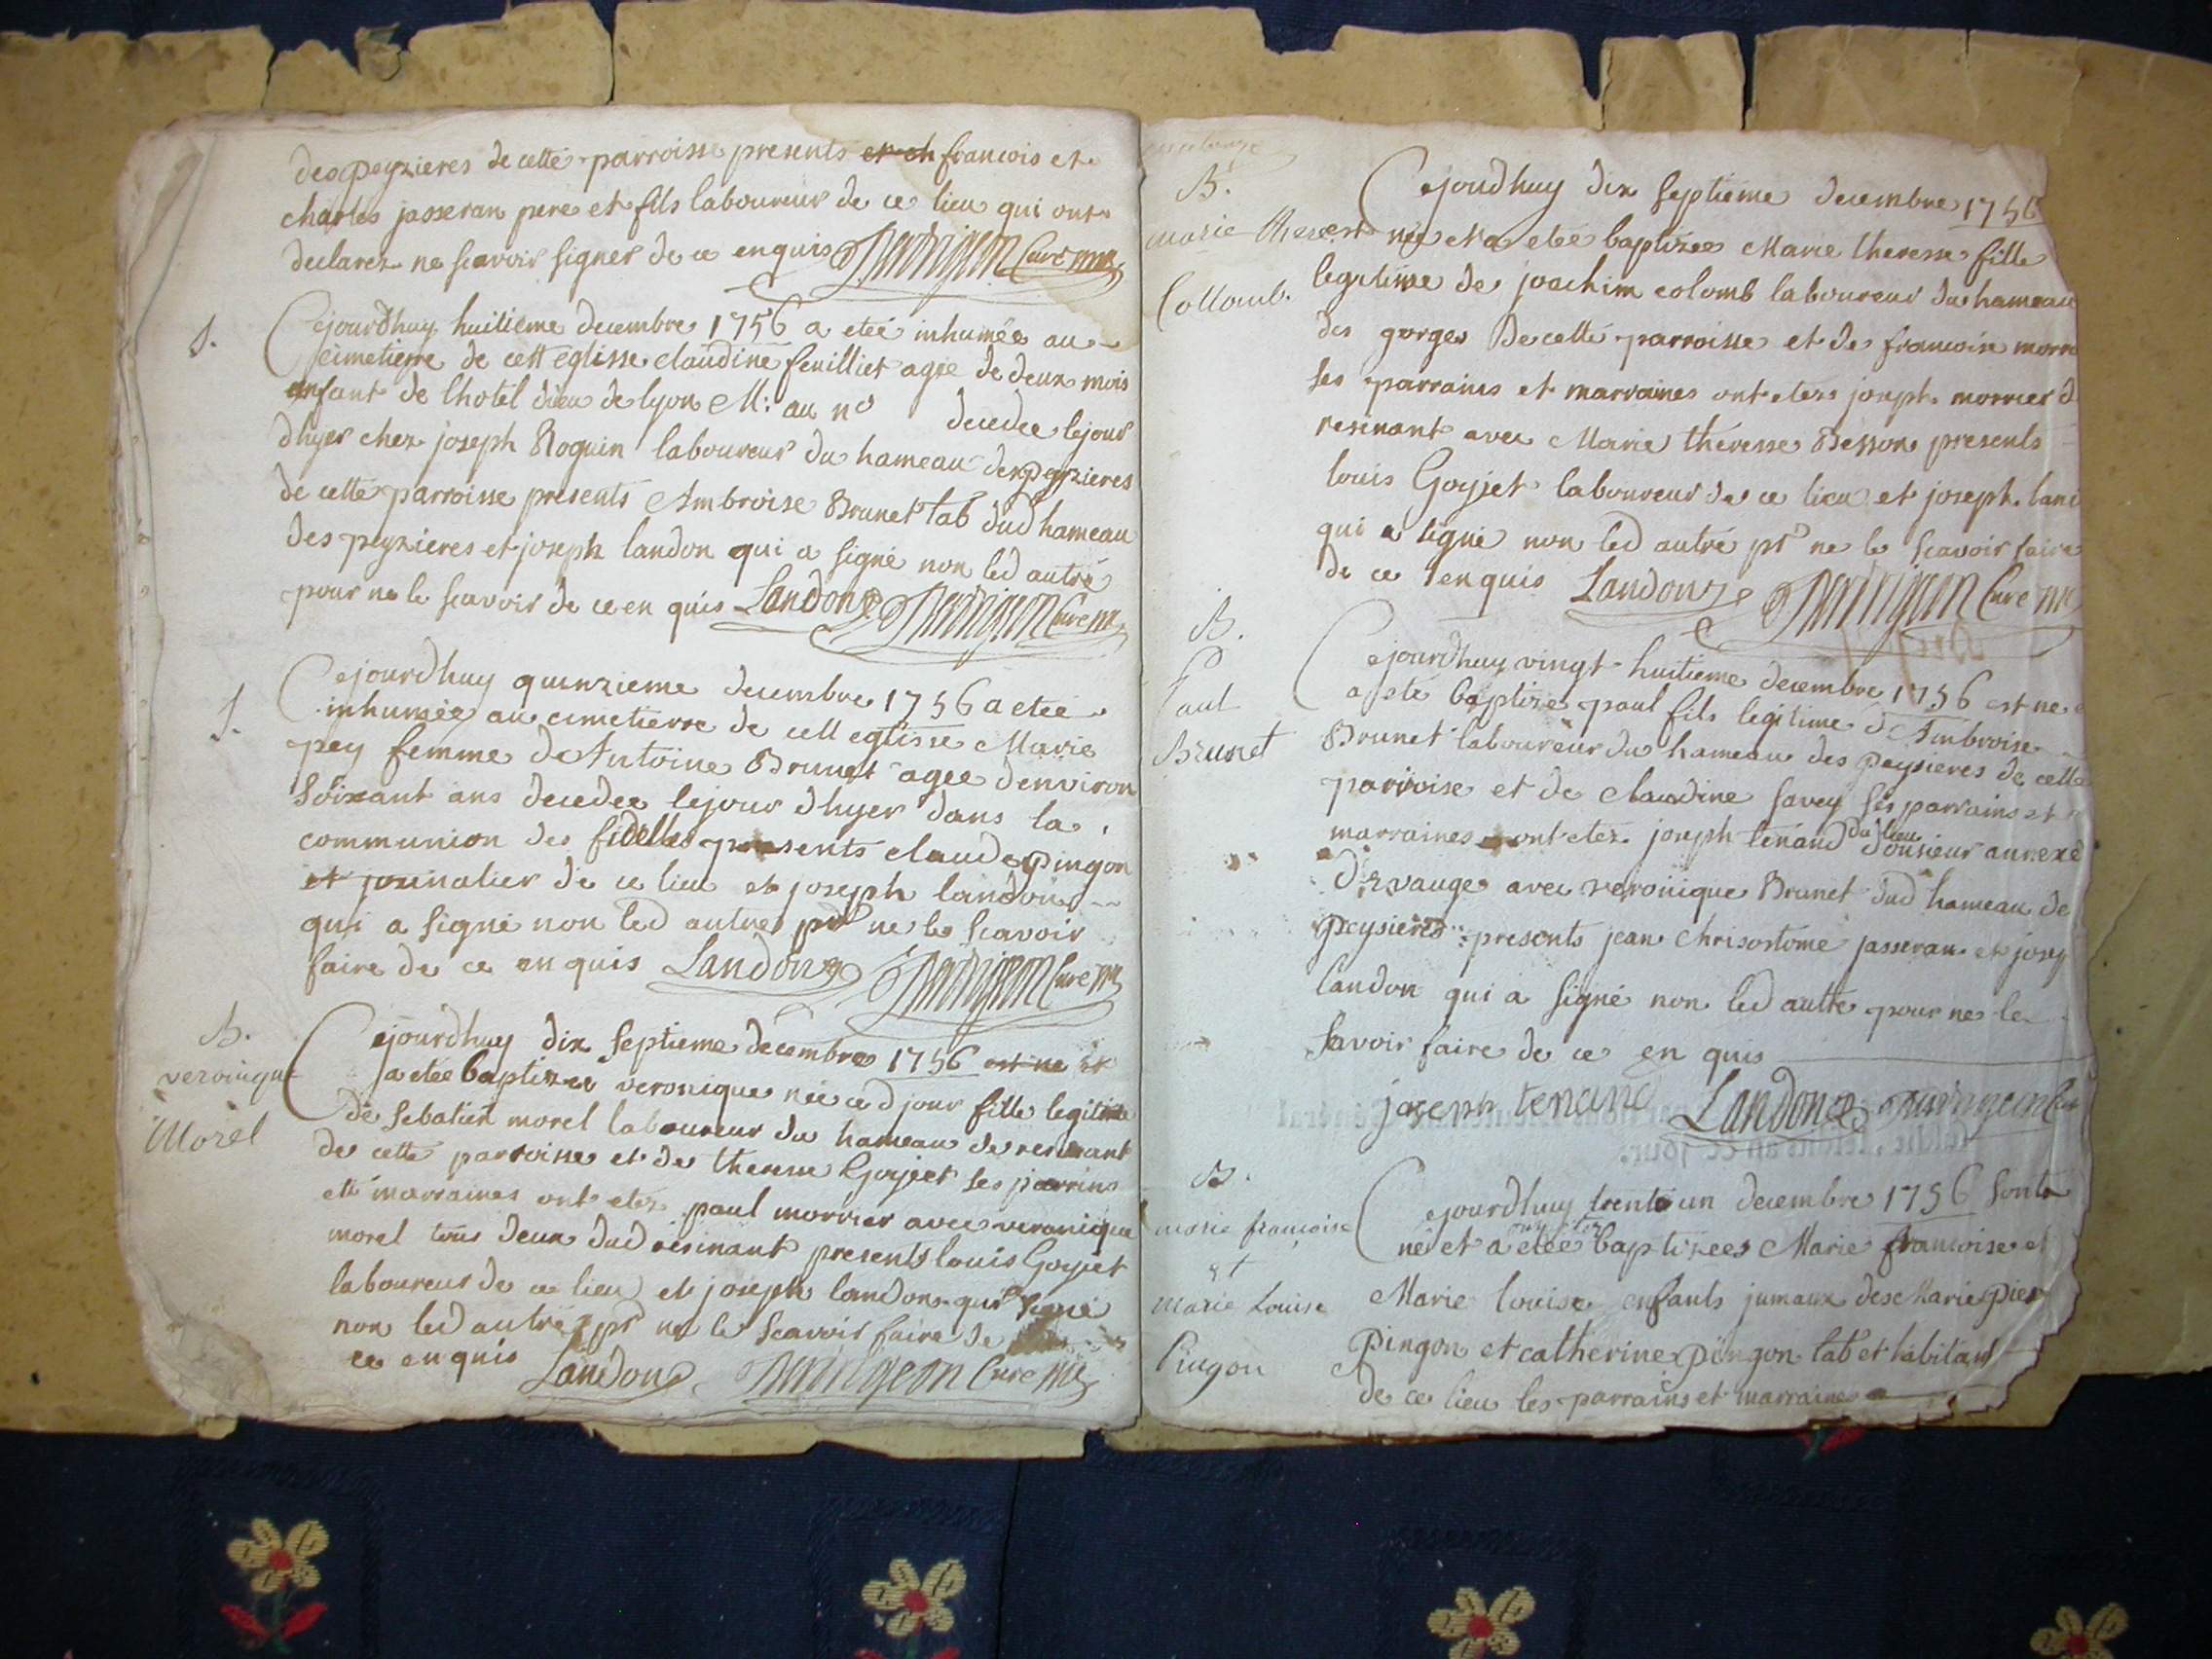 des peyzieres de cette parroisse presents et ch francois et
charles jasseran pere et fils laboureur de ce lieu qui ont
declarez ne scavoir signer de ce enquis Curé
S.
Cejourdhuy huitieme decembre 1756 a eteé inhumée au
cimetierre de cett eglisse claudine feuilliet agée de deux mois
enfant de lhotel dieu de lyon M: au no decedee lejour
dhyer chez joseph Roquin laboureur du hameau des peyzieres
de cette parroisse presents Ambroise Brunet lab dud hameau
des peyzieres et joseph landon qui a signé non led autre
pour ne le scavoir de ce en quis Landon Curé
S.
Cejourdhuy quinzieme decembre 1756 a eteé
inhumée au cimetierre de cett eglisse Marie
pey femme de Antoine Brunet agée denviron
soixant ans decedee lejour dhyer dans la
communion des fidelles presents claude pingon
et journalier de ce lieu et joseph landon
qui a signé non led autre pr ne le scavoir
faire de ce en quis Landon Curé
B.
veronique
Morel
Cejourdhuy dix septieme decembre 1756 est ne et
a eteé baptizeé veronique neé ced jour fille legitime
de sebatien morel laboureur du hameau de resinant
de cette parroisse et de theresse Goyjet ses parrins
et marraines ont etez paul morrier avec veronique
morel tous deux dud resinant presents louis Goyjet
laboureur de ce lieu et joseph landon qui signé
non led autre pr ne le scavoir faire de
ce en quis Landon Curé
B.
marie therese
Collomb.
Cejourdhuy dix septieme decembre 1756
est neé et a eteé baptizeé Marie theresse fille
legitime de joachim colomb laboureur du hameau
des gorges De cette parroisse et de francoise
ses parrains et marraines ont etez joseph morrier
resinant avec Marie theresse Besson presents
louis Goyjet laboureur de ce lieu et joseph
qui a signé non led autre pr ne le scavoir faire
de ce enquis Landon Curé
B.
Paul
Brunet
Cejourdhuy vingt huitieme decembre 1756 est ne
a eté baptizé paul fils legitime de Ambroise
Brunet laboureur du hameau des peysieres de cette
parroise et de claudine savey ses parrains et
marraines ont etez joseph tenand du lieu
avec veronique Brunet dud hameau de
peysieres presents jean chrisostome jasseran et
landon qui a signé non led autre pour ne le
savoir faire de ce en quis
joseph tenand Landon
B.
marie françoise
et
marie Louise
Pingon
Cejourdhuy trente un decembre 1756 sont
né et a eteé baptizees Marie francoise et
Marie louise enfants jumaux
Pingon et catherine pingon lab et habitant
de ce lieu les parrains et marraines